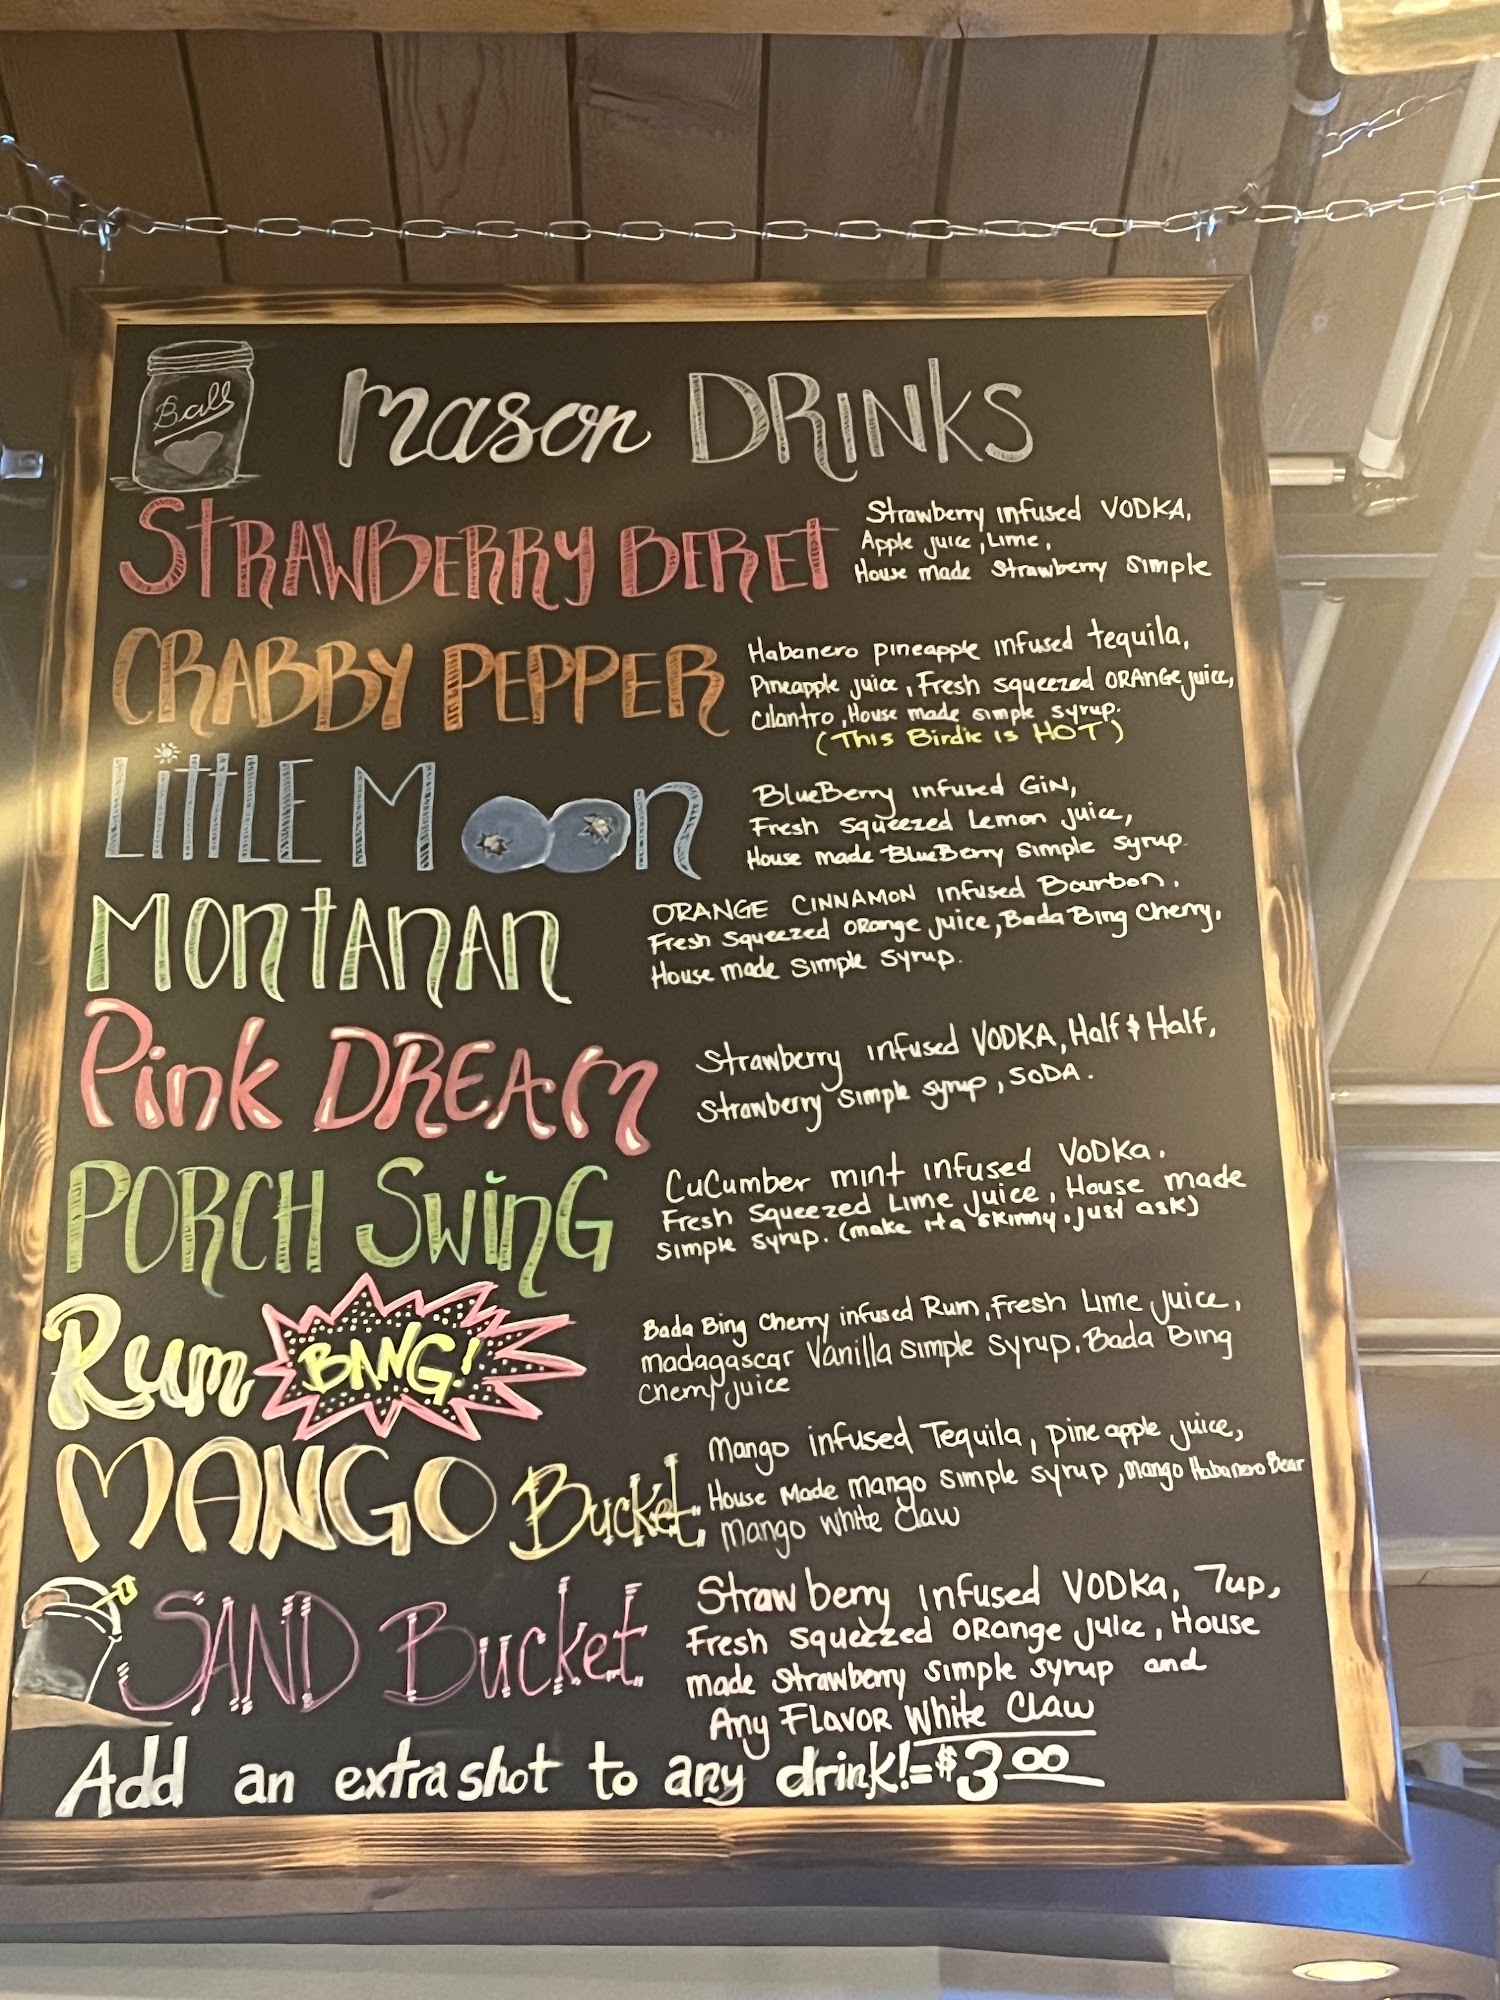 Ball
mason DRINKS
STRAWBERRY BERET
Strawberry infused VODKA,
Apple juice, Lime,
House made Strawberry Simple
CRABBY PEPPER
Habanero pineapple infused tequila,
Pineapple juice, Fresh squeezed ORANGE juice,
cilantro, House made simple syrup.
(This Birdie is HOT)
LittLE MOOn
BlueBerry infused GiN,
Fresh squeezed Lemon juice,
House made BlueBerry simple syrup.
MOntANAN
ORANGE CINNAMON infused Bourbon,
Fresh squeezed ORange juice, Bada Bing Cherry,
House made simple syrup.
Pink DREAM
Strawberry infused VODKA, Half & Half,
Strawberry simple syrup, SODA.
PORCH SwinG
CuCumber mint infused VODKa.
Fresh squeezed Lime juice, House made
simple syrup. (make it a skinny. just ask)
Rum BANG!
Bada Bing Cherry infused Rum, Fresh Lime juice,
madagascar Vanilla simple syrup. Bada Bing
Cherry juice
MANGO Bucket
Mango infused Tequila, pineapple juice,
House Made mango simple syrup, mango Habanero Bear
mango white claw
SAND Bucket
Strawberry infused VODKa, 7up,
Fresh squeezed ORange juice, House
made Strawberry simple syrup and
Any FLavoR White Claw
Add an extra shot to any drink! = $3.00